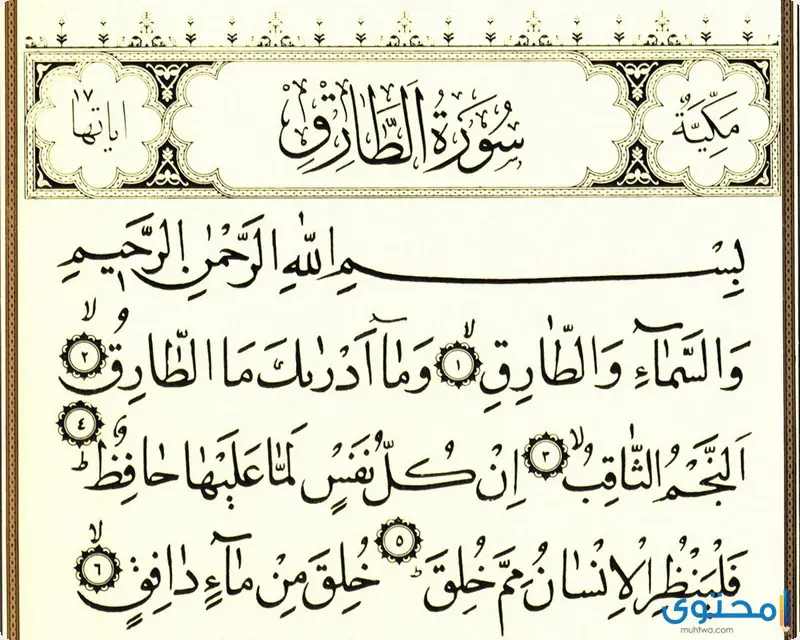 مَكِّيَّةٌ
سُورَةُ الطَّارِقِ
اياتها ١٧
بِسْمِ اللّٰهِ الرَّحْمٰنِ الرَّحِيمِ
وَالسَّمَاءِ وَالطَّارِقِ ﴿١﴾ وَمَا اَدْرٰيكَ مَا الطَّارِقُ ﴿٢﴾
اَلنَّجْمُ الثَّاقِبُ ﴿٣﴾ اِنْ كُلُّ نَفْسٍ لَمَّا عَلَيْهَا حَافِظٌ ﴿٤﴾
فَلْيَنْظُرِ الْاِنْسَانُ مِمَّ خُلِقَ ﴿٥﴾ خُلِقَ مِنْ مَاءٍ دَافِقٍ ﴿٦﴾
محتوى
muhtwa.com